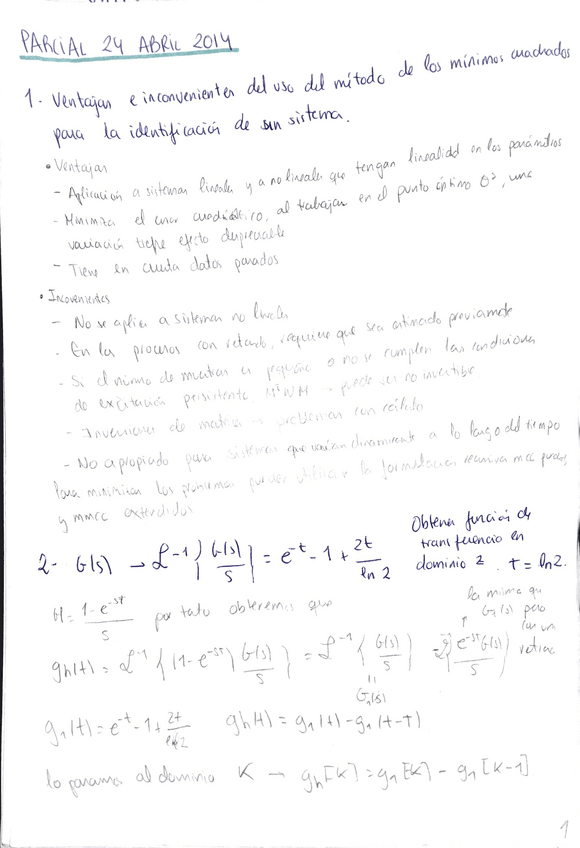 PARCIAL 24 ABRIL 2014
1- Ventajas e inconvenientes del uso del método de los mínimos cuadrados
para la identificación de un sistema.
• Ventajas
- Aplicación a sistemas lineales y a no lineales que tengan linealidad en los parámetros
- Minimiza el error cuadrático, al trabajar en el punto óptimo θ°, una
variación tiene efecto despreciable
- Tiene en cuenta datos pasados
• Incovenientes
- No se aplica a sistemas no lineales
- En los procesos con retardo, requiere que sea estimado previamente
- Si el número de muestras es pequeño o no se cumplen las condiciones
de excitación persistente, MᵀWM → puede ser no invertible
- Inversiones de matrices → problemas con
- No apropiado para sistemas que varían dinamicamente a lo largo del tiempo
Para minimizar los problemas pueden utilizar la formulación recursiva
y mmcc extendidos
2- G(s) → ℒ⁻¹{G(s)/s} = e^-t - 1 + 2t/ln 2
Obtener función de
transferencia en
dominio z. T = ln2.
H = (1-e^-sT)/s por tanto obtenemos que
la misma que
G₁(s) pero
con un
retraso
gh(t) = ℒ⁻¹{(1-e^-sT) G(s)/s} = ℒ⁻¹{G(s)/s} - ℒ⁻¹{e^-sT G(s)/s}
G₁(s)
g₁(t) = e^-t - 1 + 2t/ln2 gh(t) = g₁(t) - g₁(t-T)
lo pasamos al dominio K → gh[K] = g₁[K] - g₁[K-1]
1